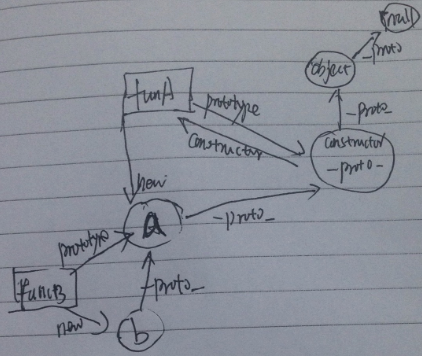 null
_proto
object
funA
prototype
_proto_
constructor
constructor
_proto_
new
a
_proto_
prototype
funcB
_proto_
new
b